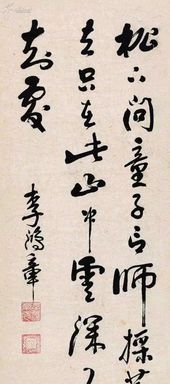 松下問童子言師採藥
去只在此山中雲深不
知處
李鴻章